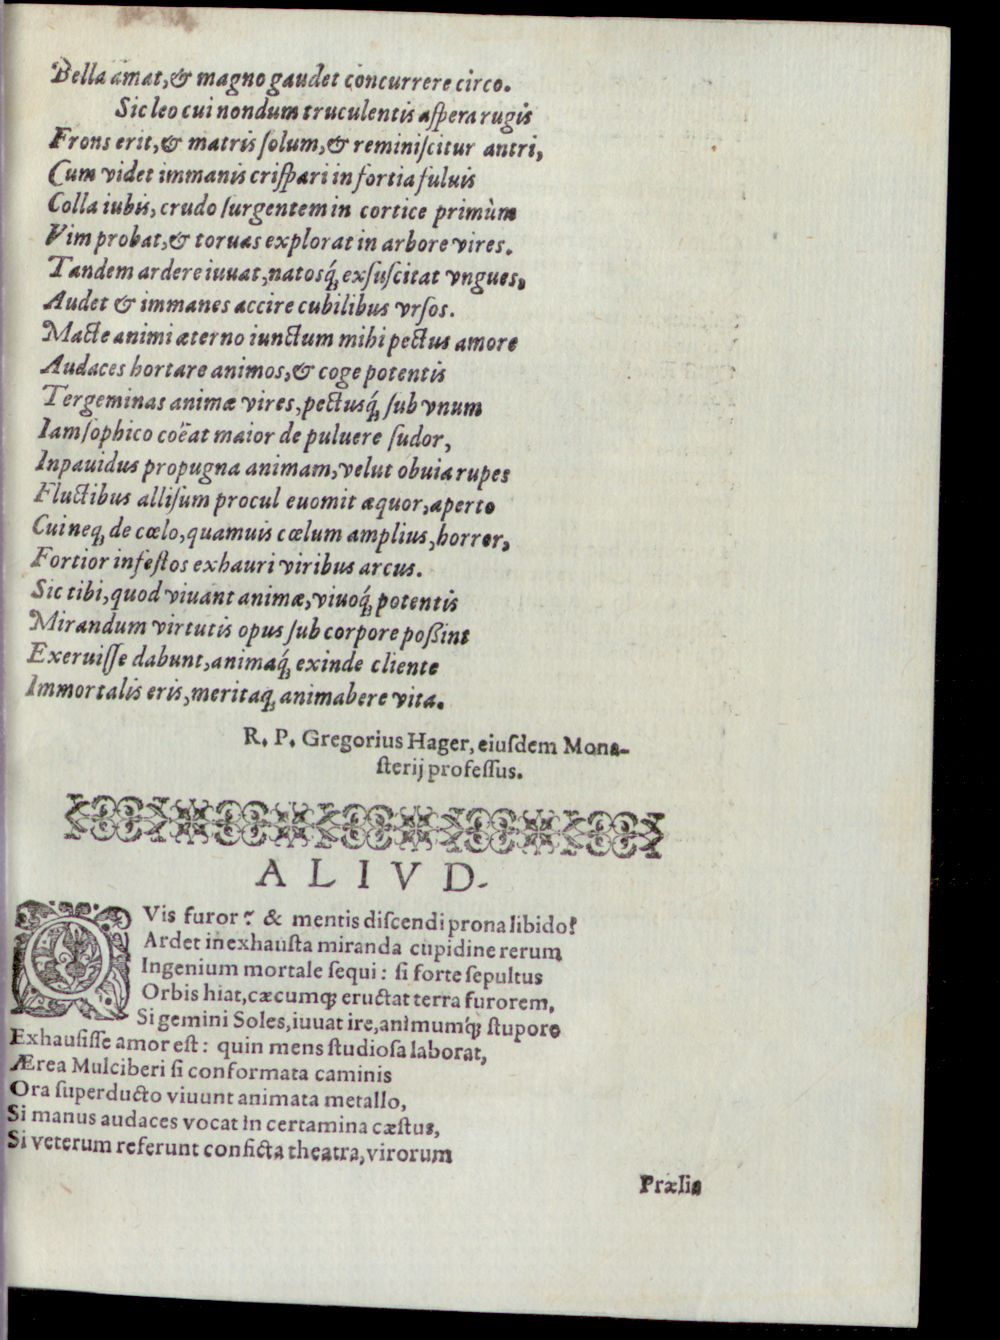 Bella amat,& magno gaudet concurrere circo.
Sic leo cui nondum truculentis aſpera rugis
Frons erit,& matris ſolum,& reminiſcitur antri,
Cum videt immanis criſpari in fortia fuluis
Colla iubis, crudo ſurgentem in cortice primùm
Vim probat,& toruas explorat in arbore vires.
Tandem ardere iuuat,natosq́; exſuſcitat vngues,
Audet & immanes accire cubilibus vrſos.
Macte animi æterno iunctum mihi pectus amore
Audaces hortare animos,& coge potentis
Tergeminas animæ vires,pectusq́; ſub vnum
Iam ſophico coëat maior de puluere ſudor,
Inpauidus propugna animam,velut obuia rupes
Fluctibus alliſum procul euomit æquor,aperto
Cui neq; de cœlo,quamuis cœlum amplius,horror,
Fortior infeſtos exhauri viribus arcus.
Sic tibi,quod viuant animæ,viuoq́; potentis
Mirandum virtutis opus ſub corpore poßint
Exeruiſſe dabunt,animaq́; exinde cliente
Immortalis eris,meritaq; animabere vita.
R. P. Gregorius Hager, eiuſdem Mona-
ſterij profeſſus.
ALIVD.
QVis furor? & mentis diſcendi prona libido?
Ardet inexhauſta miranda cupidine rerum
Ingenium mortale ſequi: ſi forte ſepultus
Orbis hiat,cæcumq; eructat terra furorem,
Si gemini Soles,iuuat ire,animumq́; ſtupore
Exhauſiſſe amor eſt: quin mens ſtudioſa laborat,
Ærea Mulciberi ſi conformata caminis
Ora ſuperducto viuunt animata metallo,
Si manus audaces vocat in certamina cæſtus,
Si veterum referunt conficta theatra,virorum
Prælia